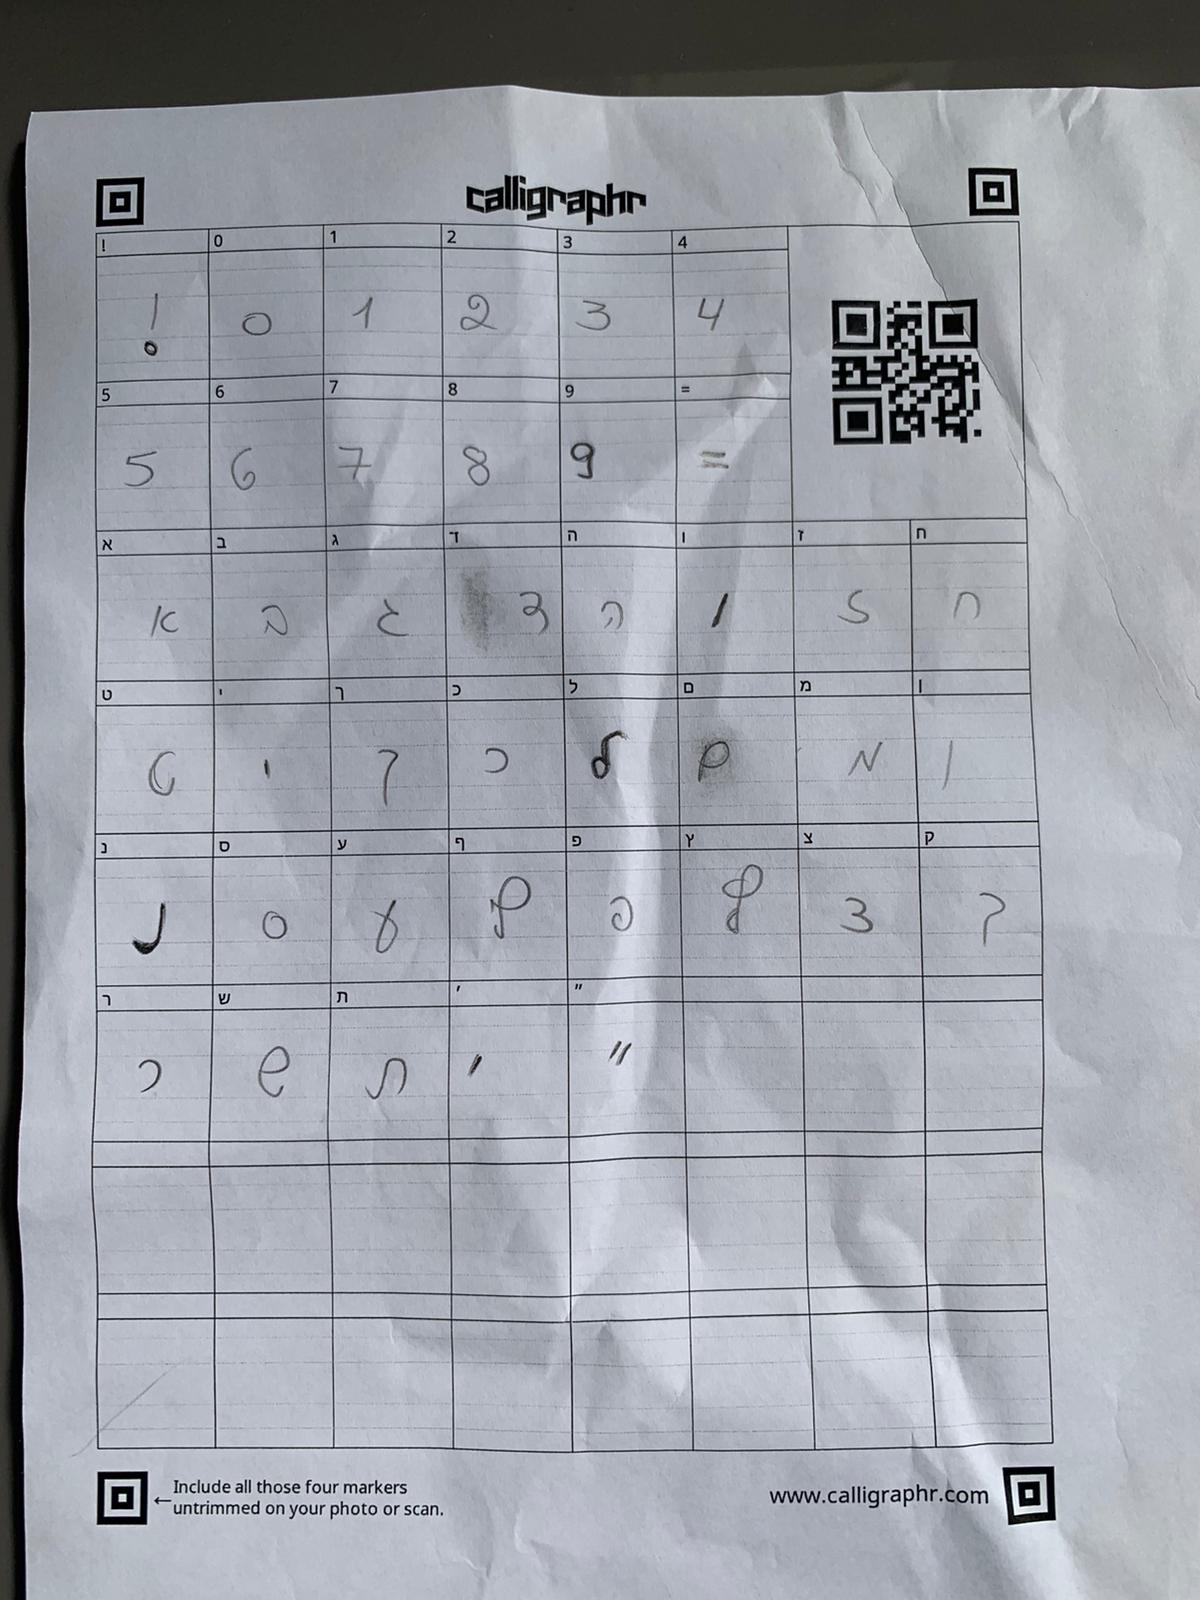 calligraphr
! 0 1 2 3 4
! 0 1 2 3 4
5 6 7 8 9 =
5 6 7 8 9 =
א ב ג ד ה ו ז ח
א ב ג ד ה ו ז ח
ט י ך כ ל ם מ ן
ט י ך כ ל ם מ ן
נ ס ע ף פ ץ צ ק
נ ס ע ף פ ץ צ ק
ר ש ת ׳ ״
ר ש ת ׳ ״
←Include all those four markers
untrimmed on your photo or scan.
www.calligraphr.com